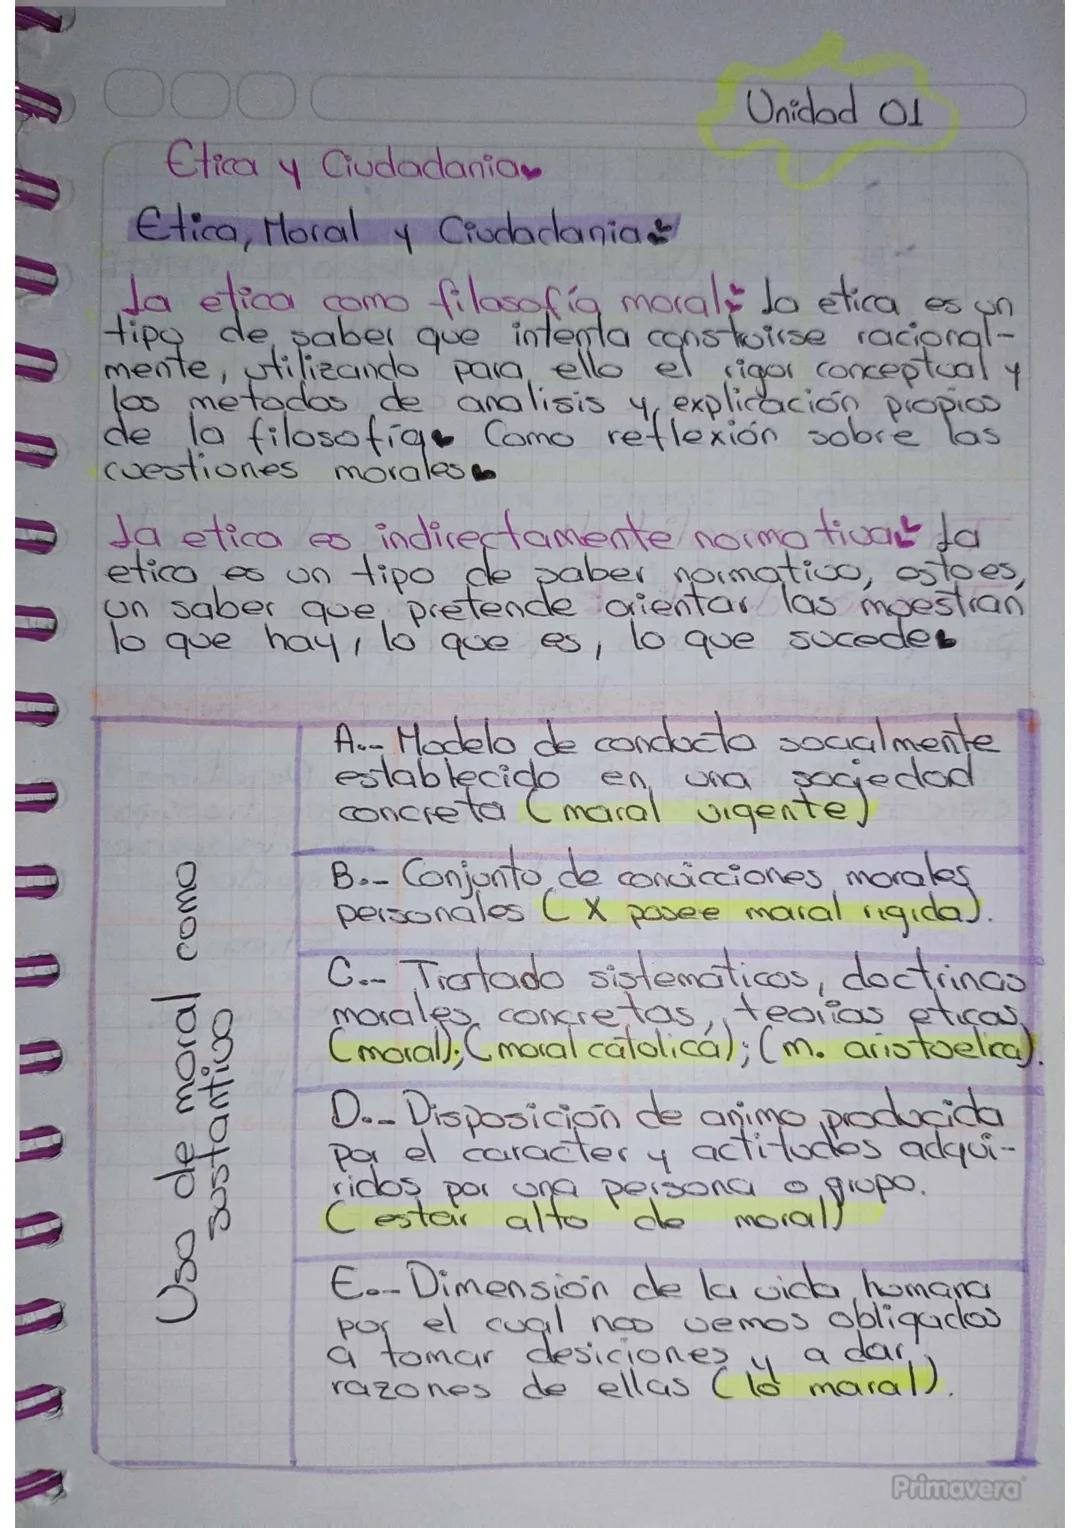 Unidad 01
Etica y Ciudadania
Etica, Moral y Ciudadania
La etica como filosofía moral: La etica es un
tipo de saber que intenta construirse racional-
mente, utilizando para ello el rigor conceptual y
los metodos de analisis y explicación propios
de la filosofía. Como reflexión sobre las
cuestiones morales.
La etica es indirectamente normativa: La
etica es un tipo de saber normativo, esto es,
un saber que pretende orientar las muestran
lo que hay, lo que es, lo que sucede.
Uso de moral como
sustantivo
A.- Modelo de conducta socialmente
establecido en una sociedad
concreta (moral vigente)
B.- Conjunto de convicciones morales
personales (X posee moral rigida).
C.- Tratado sistematicos, doctrinas
morales concretas, teorias eticas
(moral); (moral catolica); (m. aristoelica).
D.- Disposición de animo producida
por el caracter y actitudes adqui-
ridos por una persona o grupo.
(estar alto de moral)
E.- Dimensión de la vida humana
por el cual nos vemos obligados
a tomar desiciones y a dar
razones de ellas (lo moral).
Primavera